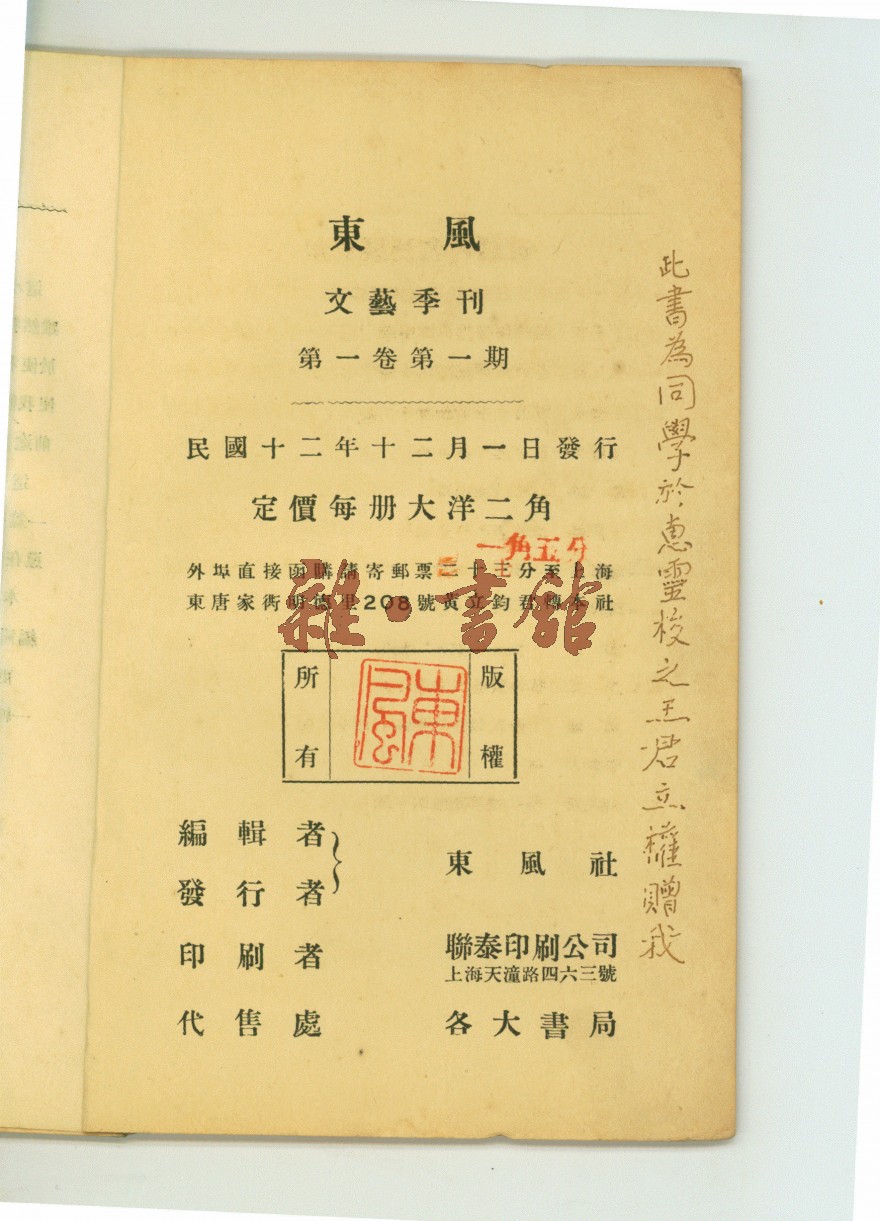 東風
文藝季刊
第一卷第一期
民國十二年十二月一日發行
定價每册大洋二角
一角五分
外埠直接函購請寄郵票二十三分至上海
東唐家衖明德里208號黃立鈞君轉本社
雜·書館
版權
所有
東風
編輯者
發行者
東風社
印刷者
聯泰印刷公司
上海天潼路四六三號
代售處
各大書局
此書為同學於惠靈校之王君立權贈我